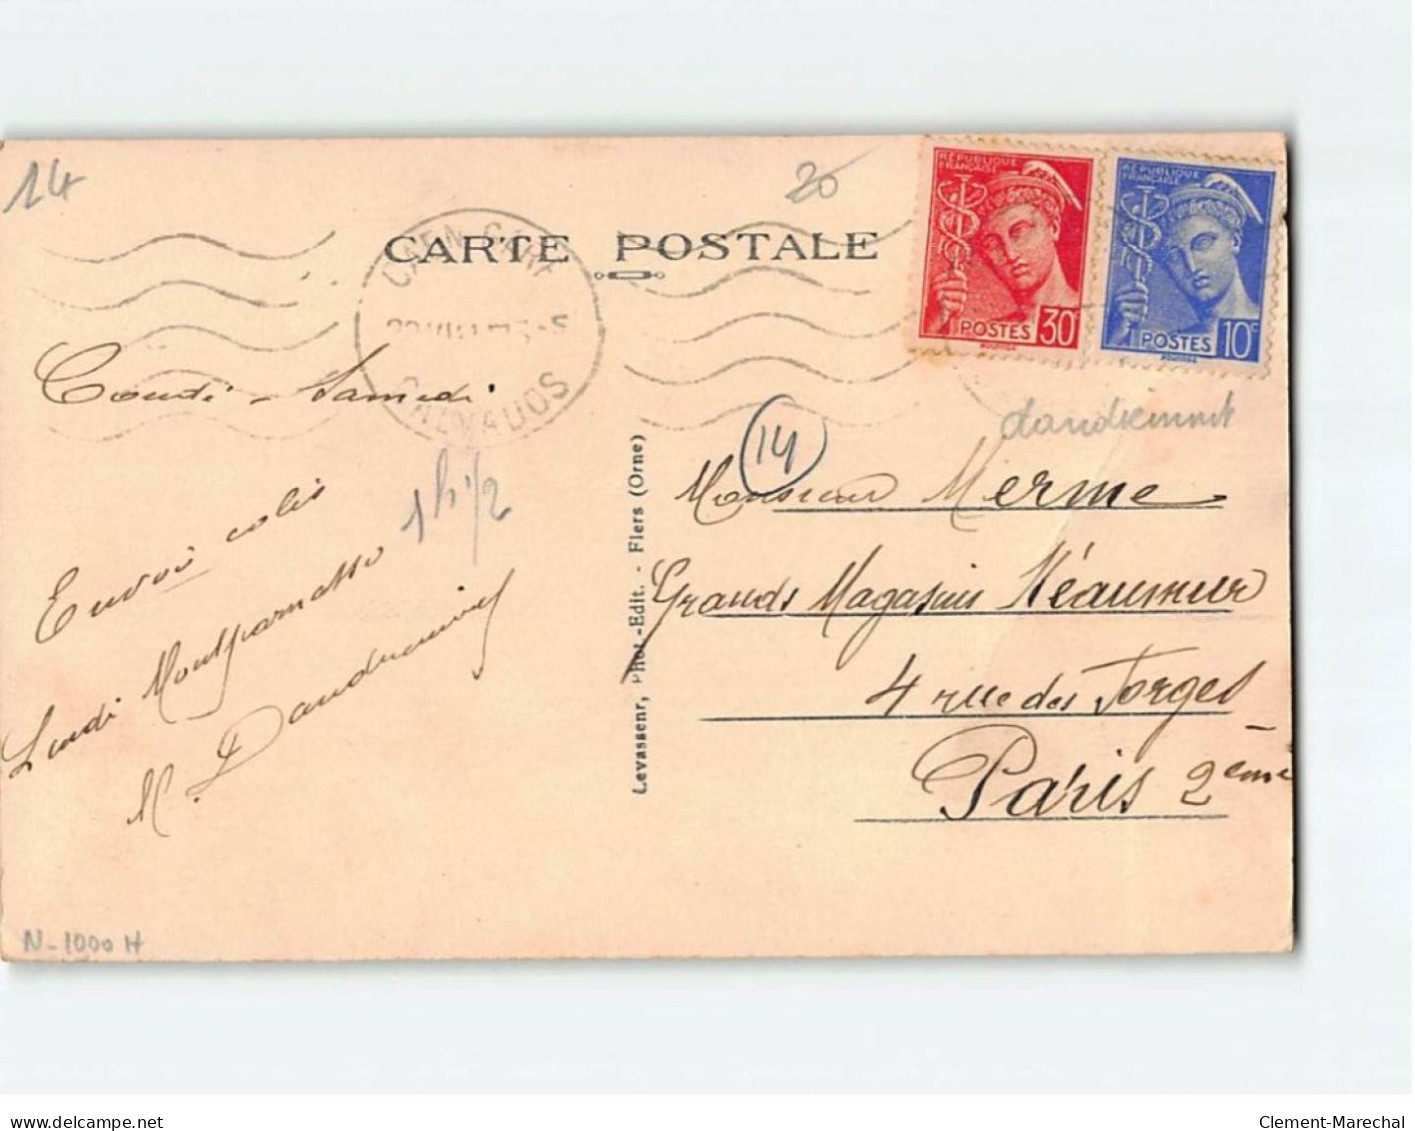 14
20
CARTE POSTALE
CAEN GARE
CALVADOS
RÉPUBLIQUE FRANÇAISE
POSTES 30c
RÉPUBLIQUE FRANÇAISE
POSTES 10c
Condé - Samedi
1h 1/2
Envoi colis
Lundi Montparnasse
M.
Levasseur, Phot.-Edit. - Flers (Orne)
14
Monsieur Merme
Grands Magasins Réaumur
4 rue des Forges
Paris 2ème
N-1000 H
www.delcampe.net
Clement-Marechal